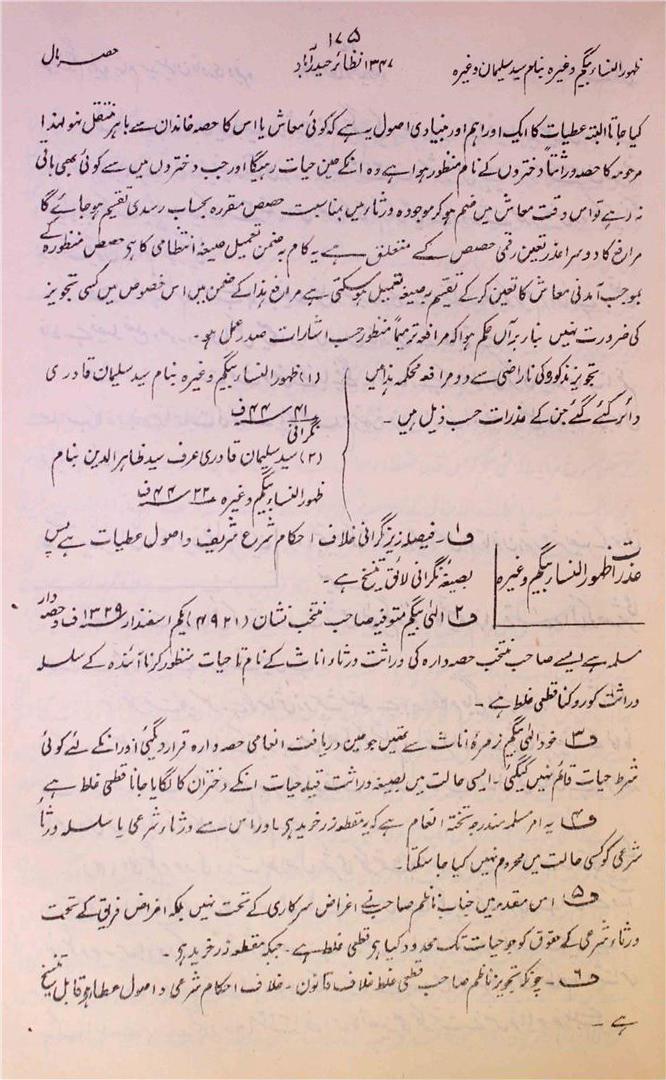 ۱۷۵
ظہور النساء بیگم وغیرہ بنام سید سلیمان وغیرہ ۱۳۴۷ نظائر حیدرآباد حصہ مال
کیا جاتا البتہ عطیات کا ایک اور اہم اور بنیادی اصول یہ ہے کہ کوئی معاش یا اس کا حصہ خاندان سے باہر منتقل نہو لہذا
مرحومہ کا حصہ وراثتاً دختروں کے نام منظور ہوا ہے وہ انکے حین حیات رہیگا اور جب دختروں میں سے کوئی بھی باقی
نہ رہے تو اس وقت معاش میں ضم ہو کر موجودہ ورثاء میں بمناسبت حصص مقررہ بحساب رسدی تقسیم ہو جائے گا
مرافع کا دوسرا عذر تعین رقمی حصص کے متعلق ہے یہ کام بہ ضمن تعمیل صیغۂ انتظامی کا ہی حصص منظورہ کے
بموجب آمدنی معاش کا تعین کر کے تقسیم بہ صیغہ تعمیل ہو سکتی ہے مرافع ہذا کے ضمن میں اس خصوص میں کسی تجویز
کی ضرورت نہیں بنا بر آں حکم ہوا کہ مرافعہ ترمیماً منظور حسب اشارات صدر عمل ہو۔
تجویز مذکورہ کی ناراضی سے دو مرافعہ محکمہ ہذا میں
دائر کئے گئے جن کے عذرات حسب ذیل ہیں۔
(۱) ظہور النساء بیگم وغیرہ بنام سید سلیمان قادری
۴۱ ۴۴ف
نگرانی
(۲) سید سلیمان قادری عرف سید ظاہر الدین بنام
ظہور النساء بیگم وغیرہ ۲۲ ۴۴ف
عذرات ظہور النساء بیگم وغیرہ
ف۱۔ فیصلہ زیر نگرانی خلاف احکام شرع شریف و اصول عطیات ہے پس
بصیغۂ نگرانی لائق تنسیخ ہے۔
ف۲ الہٰی بیگم متوفیہ صاحب منتخب نشان (۴۹۲۱) یکم اسفندار ۱۳۲۹ف و حصہ دار
مسلمہ ہے ایسے صاحب منتخب حصہ دارہ کی وراثت ورثاء اناث کے نام تا حیات منظور کرنا آئندہ کے سلسلہ
وراثت کو روکنا قطعی غلط ہے۔
ف۳ خود الٰہی بیگم زمرۂ اناث سے تھیں جو حین دریافت انعامی حصہ دارہ قرار دیگئی اور انکے لئے کوئی
شرط حیات قائم نہیں کیگئی۔ ایسی حالت میں بصیغہ وراثت قید حیات انکے دختران کا لگایا جانا قطعی غلط ہے
ف۴ یہ امر مسلمہ مندرجہ تختہ انعام ہے کہ یہ مقطعہ زر خرید ہے اور اس سے ورثاء شرعی یا سلسلہ ورثاء
شرعی کو کسی حالت میں محروم نہیں کیا جا سکتا۔
ف۵ اس مقدمہ میں جناب ناظم صاحب نے اغراض سرکاری کے تحت نہیں بلکہ اغراض فریق کے تحت
ورثاء شرعی کے حقوق کو جو حیات تک محدود کیا ہے قطعی غلط ہے۔ جبکہ مقطعہ زر خرید ہے۔
ف۶۔ چونکہ تجویز ناظم صاحب قطعی غلط خلاف قانون۔ خلاف احکام شرعی و اصول عطا ہے قابل تنسیخ
ہے۔